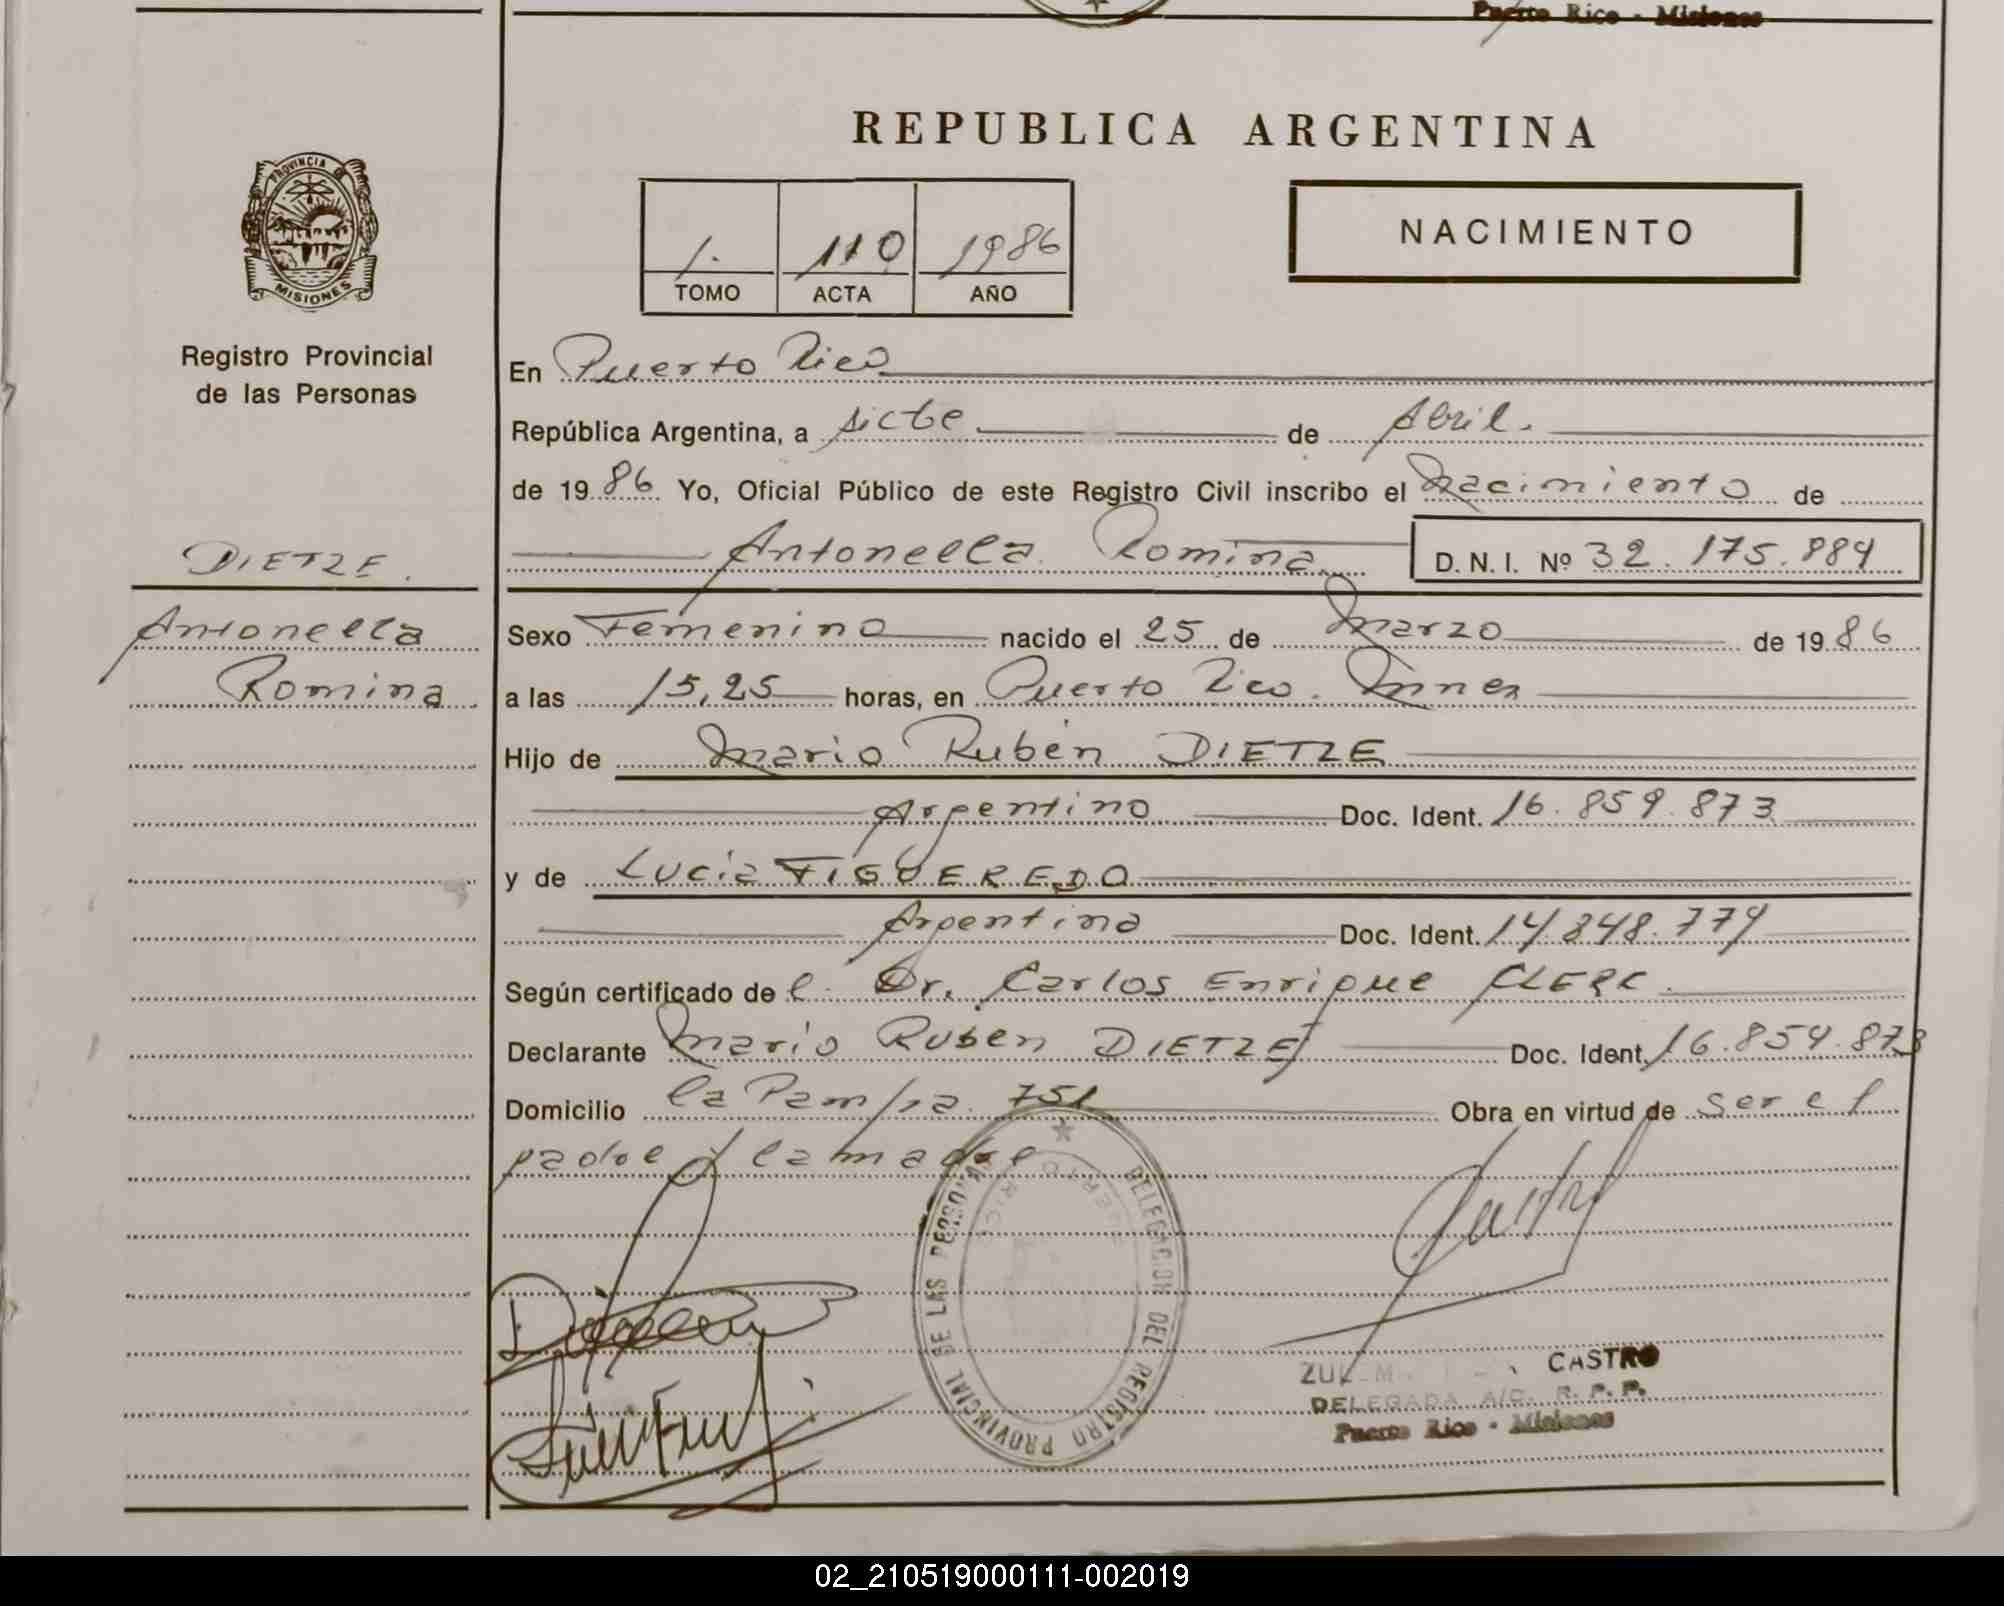 Puerto Rico - Misiones
REPUBLICA ARGENTINA
PROVINCIA DE
MISIONES
1. 110 1986
TOMO ACTA AÑO
NACIMIENTO
Registro Provincial
de las Personas
DIETZE.
Antonella
Romina
En Puerto Rico
República Argentina, a siete de Abril.
de 1986 Yo, Oficial Público de este Registro Civil inscribo el Nacimiento de
Antonella Romina D. N. I. Nº 32.175.884
Sexo Femenino nacido el 25 de Marzo de 1986
a las 15,25 horas, en Puerto Rico. Mnes
Hijo de Mario Rubén DIETZE
Argentino Doc. Ident. 16.859.873
y de Lucia FIGUEREDO
Argentina Doc. Ident. 14.848.779
Según certificado de l. Dr. Carlos Enrique CLERC.
Declarante Mario Ruben DIETZE Doc. Ident. 16.859.873
Domicilio la Pampa 751 Obra en virtud de ser el
padre y la madre
DELEGACION DEL REGISTRO PROVINCIAL DE LAS PERSONAS
PUERTO RICO
CASTRO
DELEGADA A/C. R. P. P.
Puerto Rico - Misiones
02_210519000111-002019